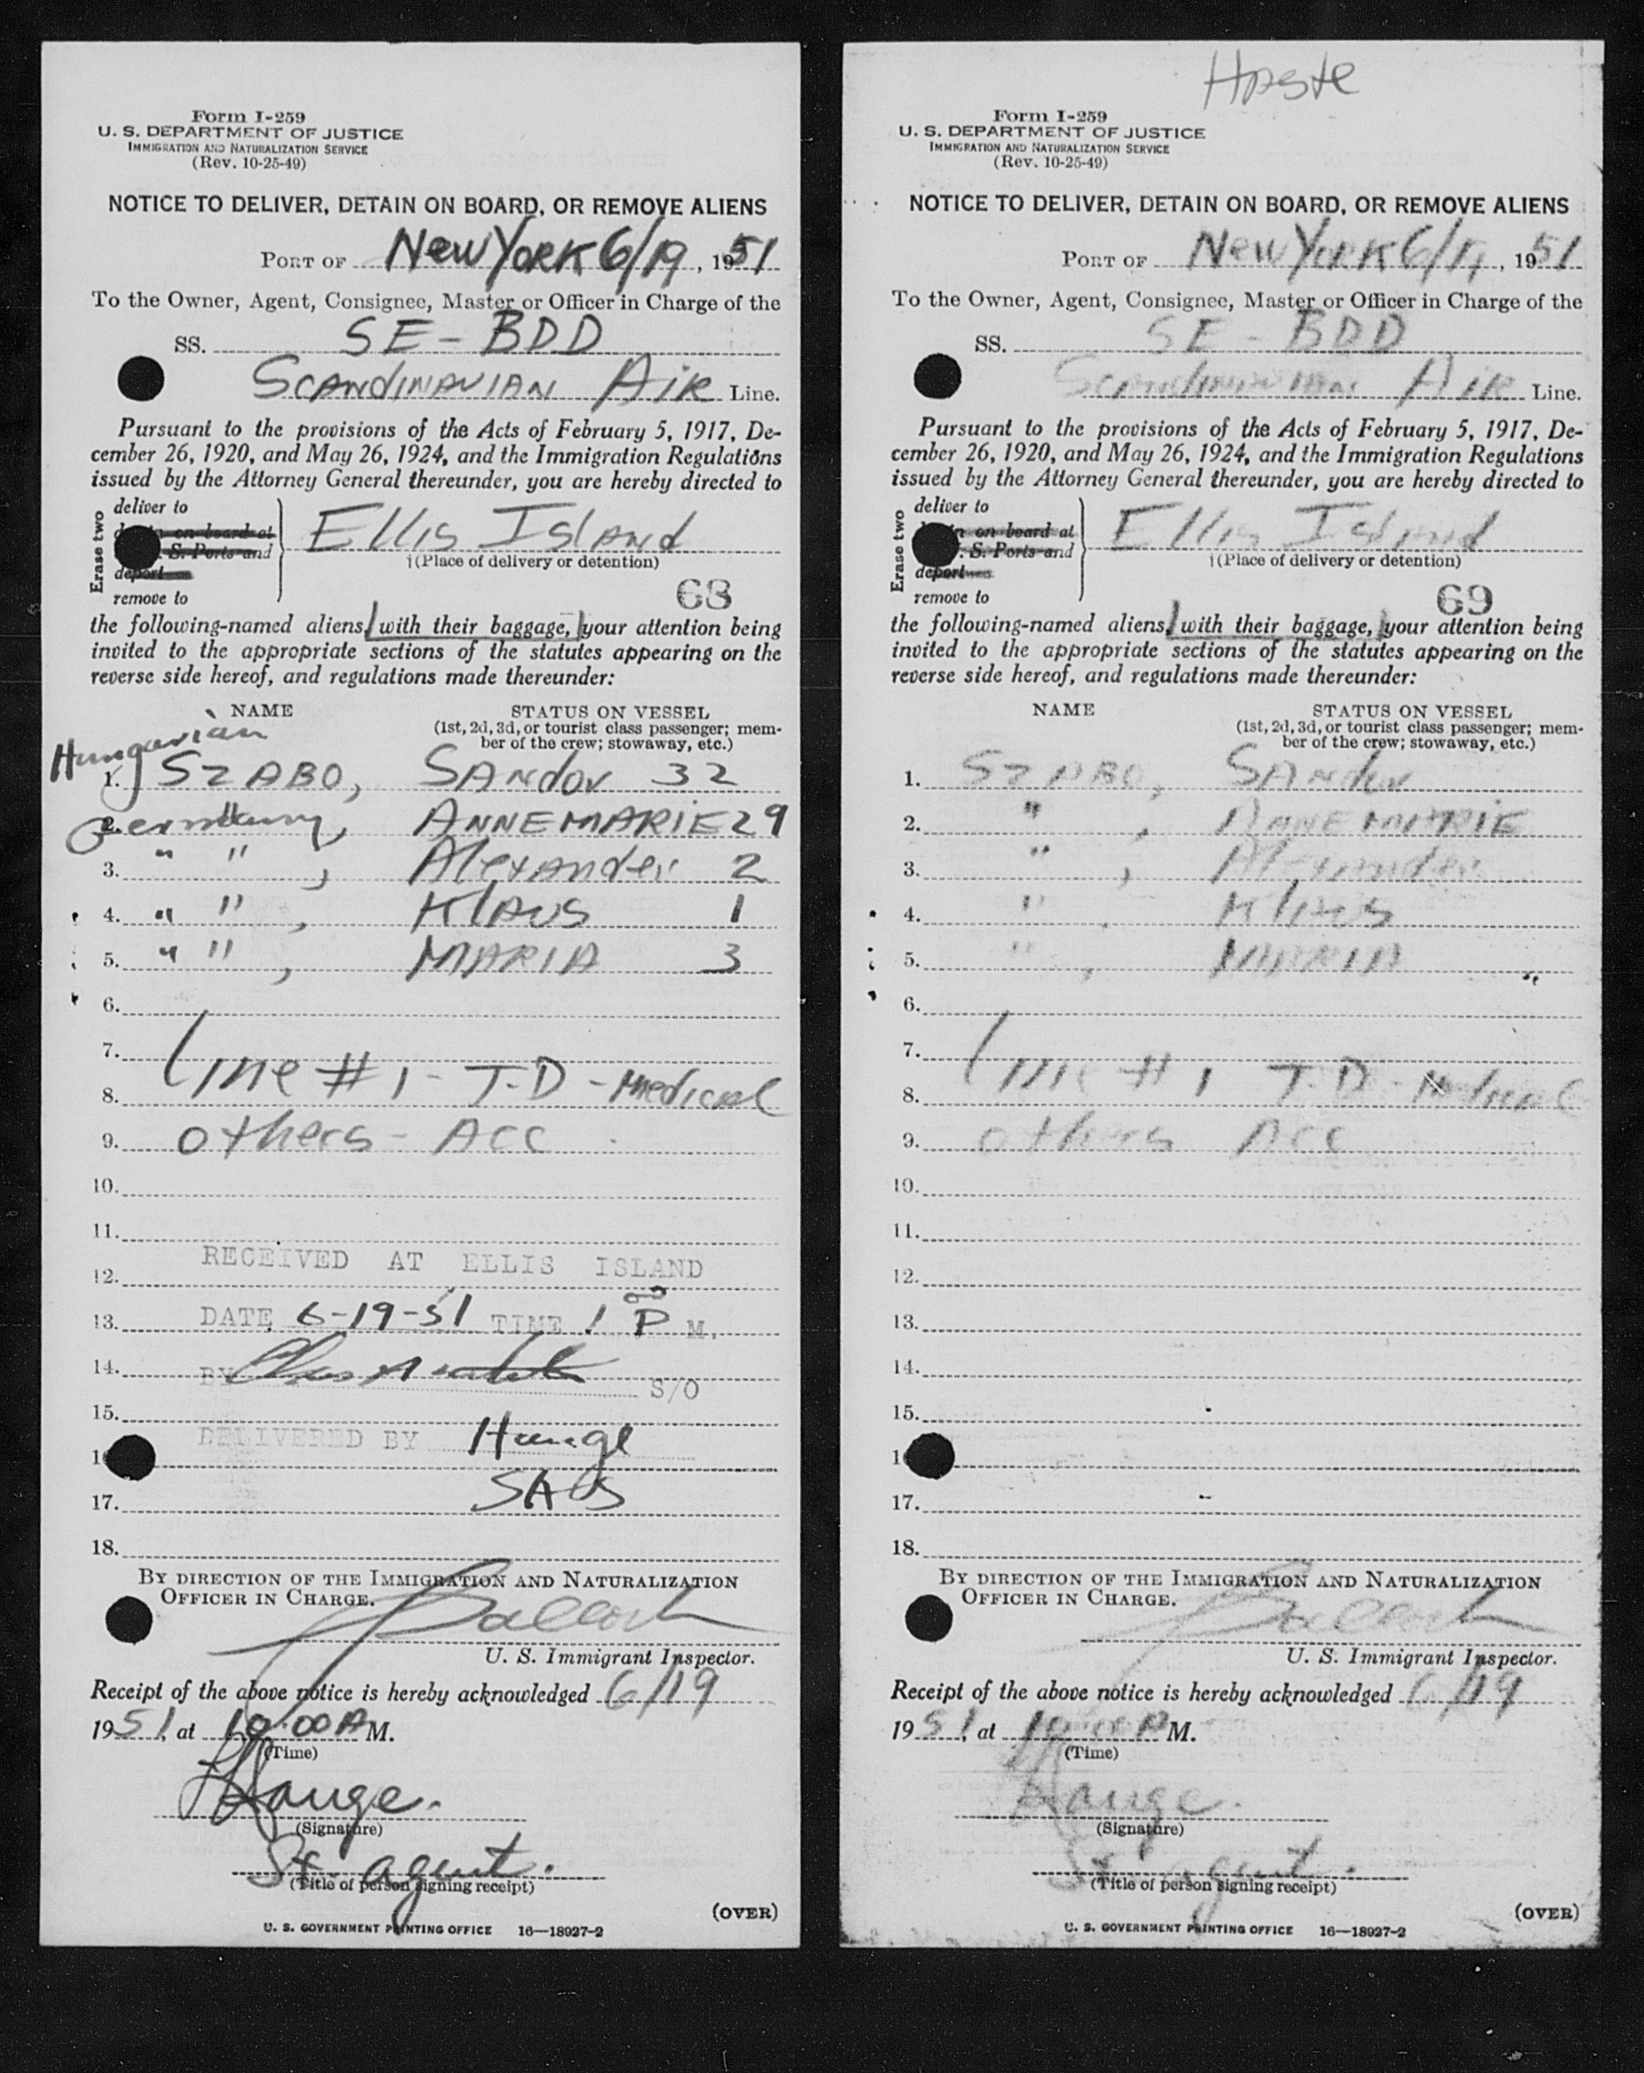 Form I-259
U. S. DEPARTMENT OF JUSTICE
IMMIGRATION AND NATURALIZATION SERVICE
(Rev. 10-25-49)
NOTICE TO DELIVER, DETAIN ON BOARD, OR REMOVE ALIENS
PORT OF New York 6/19, 1951
To the Owner, Agent, Consignee, Master or Officer in Charge of the
SS. SE-BDD
SCANDINAVIAN AIR Line.
Pursuant to the provisions of the Acts of February 5, 1917, De-
cember 26, 1920, and May 26, 1924, and the Immigration Regulations
issued by the Attorney General thereunder, you are hereby directed to
Erase two
deliver to
on board at
S. Ports and
deport
remove to
Ellis Island
(Place of delivery or detention)
68
the following-named aliens, with their baggage, your attention being
invited to the appropriate sections of the statutes appearing on the
reverse side hereof, and regulations made thereunder:
NAME STATUS ON VESSEL
(1st, 2d, 3d, or tourist class passenger; mem-
ber of the crew; stowaway, etc.)
Hungarian
1. SZABO, SANdor 32
2. Germany " , ANNEMARIE 29
3. " " , Alexander 2
4. " " , KlAUS 1
5. " " , MARIA 3
6.
7.
8. Line # 1 - T-D - Medical
9. Others - ACC
10.
11.
12. RECEIVED AT ELLIS ISLAND
13. DATE 6-19-51 TIME 1 00 P M.
14. BY
S/O
15.
DELIVERED BY Hauge
16
17. SAS
18.
BY DIRECTION OF THE IMMIGRATION AND NATURALIZATION
OFFICER IN CHARGE.
U. S. Immigrant Inspector.
Receipt of the above notice is hereby acknowledged 6/19
1951, at 10:00 A M.
(Time)
Hauge.
(Signature)
St. agent.
(Title of person signing receipt)
(OVER)
U. S. GOVERNMENT PRINTING OFFICE 16—18927-2
Form I-259
U. S. DEPARTMENT OF JUSTICE
IMMIGRATION AND NATURALIZATION SERVICE
(Rev. 10-25-49)
NOTICE TO DELIVER, DETAIN ON BOARD, OR REMOVE ALIENS
PORT OF New York 6/19, 1951
To the Owner, Agent, Consignee, Master or Officer in Charge of the
SS. SE-BDD
SCANDINAVIAN AIR Line.
Pursuant to the provisions of the Acts of February 5, 1917, De-
cember 26, 1920, and May 26, 1924, and the Immigration Regulations
issued by the Attorney General thereunder, you are hereby directed to
Erase two
deliver to
on board at
S. Ports and
deport
remove to
Ellis Island
(Place of delivery or detention)
69
the following-named aliens, with their baggage, your attention being
invited to the appropriate sections of the statutes appearing on the
reverse side hereof, and regulations made thereunder:
NAME STATUS ON VESSEL
(1st, 2d, 3d, or tourist class passenger; mem-
ber of the crew; stowaway, etc.)
1. SZABO, SANdor
2. " , ANNEMARIE
3. " , Alexander
4. " , KlAUS
5. " , MARIA
6.
7.
8. Line # 1 T-D - Medical
9. Others ACC
10.
11.
12.
13.
14.
15.
16
17.
18.
BY DIRECTION OF THE IMMIGRATION AND NATURALIZATION
OFFICER IN CHARGE.
U. S. Immigrant Inspector.
Receipt of the above notice is hereby acknowledged 6/19
1951, at 10:00 A M.
(Time)
Hauge.
(Signature)
St. agent.
(Title of person signing receipt)
(OVER)
U. S. GOVERNMENT PRINTING OFFICE 16—18927-2